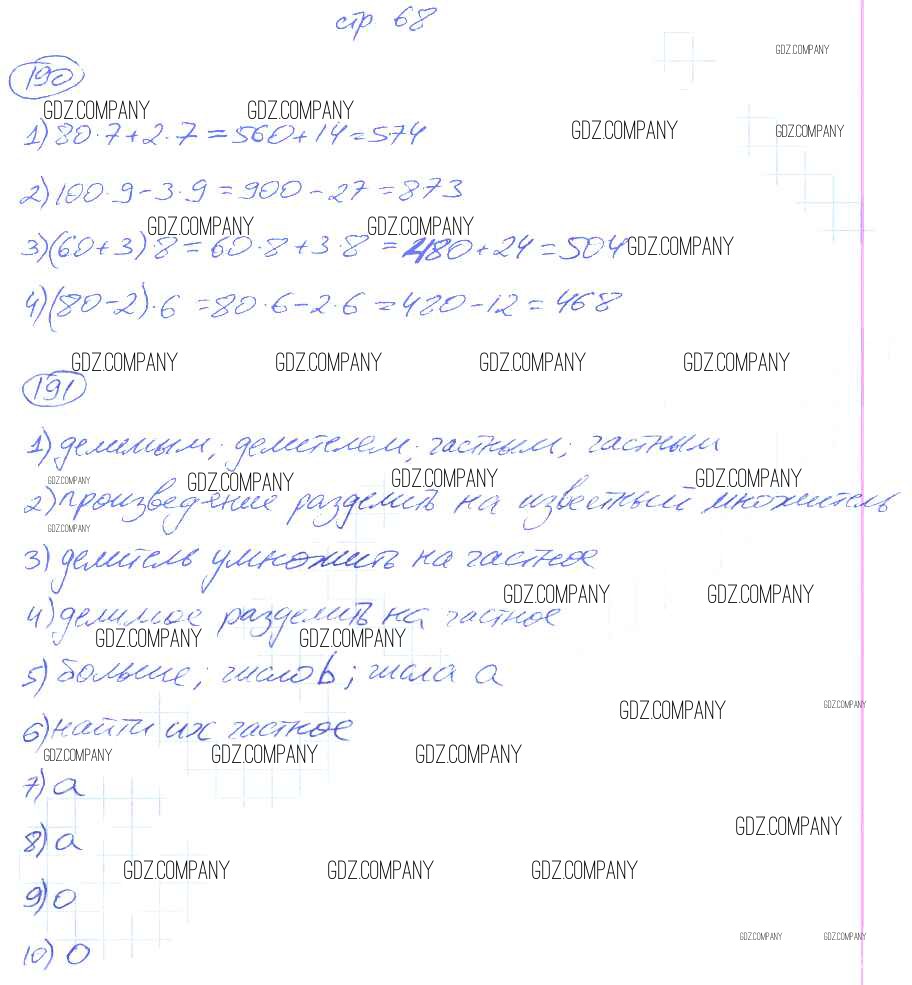 стр 68
GDZ.COMPANY
190
GDZ.COMPANY GDZ.COMPANY GDZ.COMPANY GDZ.COMPANY
1) 80·7+2·7=560+14=574
2) 100·9-3·9=900-27=873
GDZ.COMPANY GDZ.COMPANY
3) (60+3)·8=60·8+3·8=480+24=504 GDZ.COMPANY
4) (80-2)·6=80·6-2·6=480-12=468
GDZ.COMPANY GDZ.COMPANY GDZ.COMPANY GDZ.COMPANY
191
1) делимым; делителем; частным; частным
GDZ.COMPANY GDZ.COMPANY GDZ.COMPANY GDZ.COMPANY
2) произведение разделить на известный множитель
GDZ.COMPANY
3) делитель умножить на частное
GDZ.COMPANY GDZ.COMPANY
4) делимое разделить на частное
GDZ.COMPANY GDZ.COMPANY
5) больше; число b; числа a
GDZ.COMPANY GDZ.COMPANY
6) найти их частное
GDZ.COMPANY GDZ.COMPANY GDZ.COMPANY
7) a
GDZ.COMPANY
8) a
GDZ.COMPANY GDZ.COMPANY GDZ.COMPANY
9) 0
GDZ.COMPANY GDZ.COMPANY
10) 0